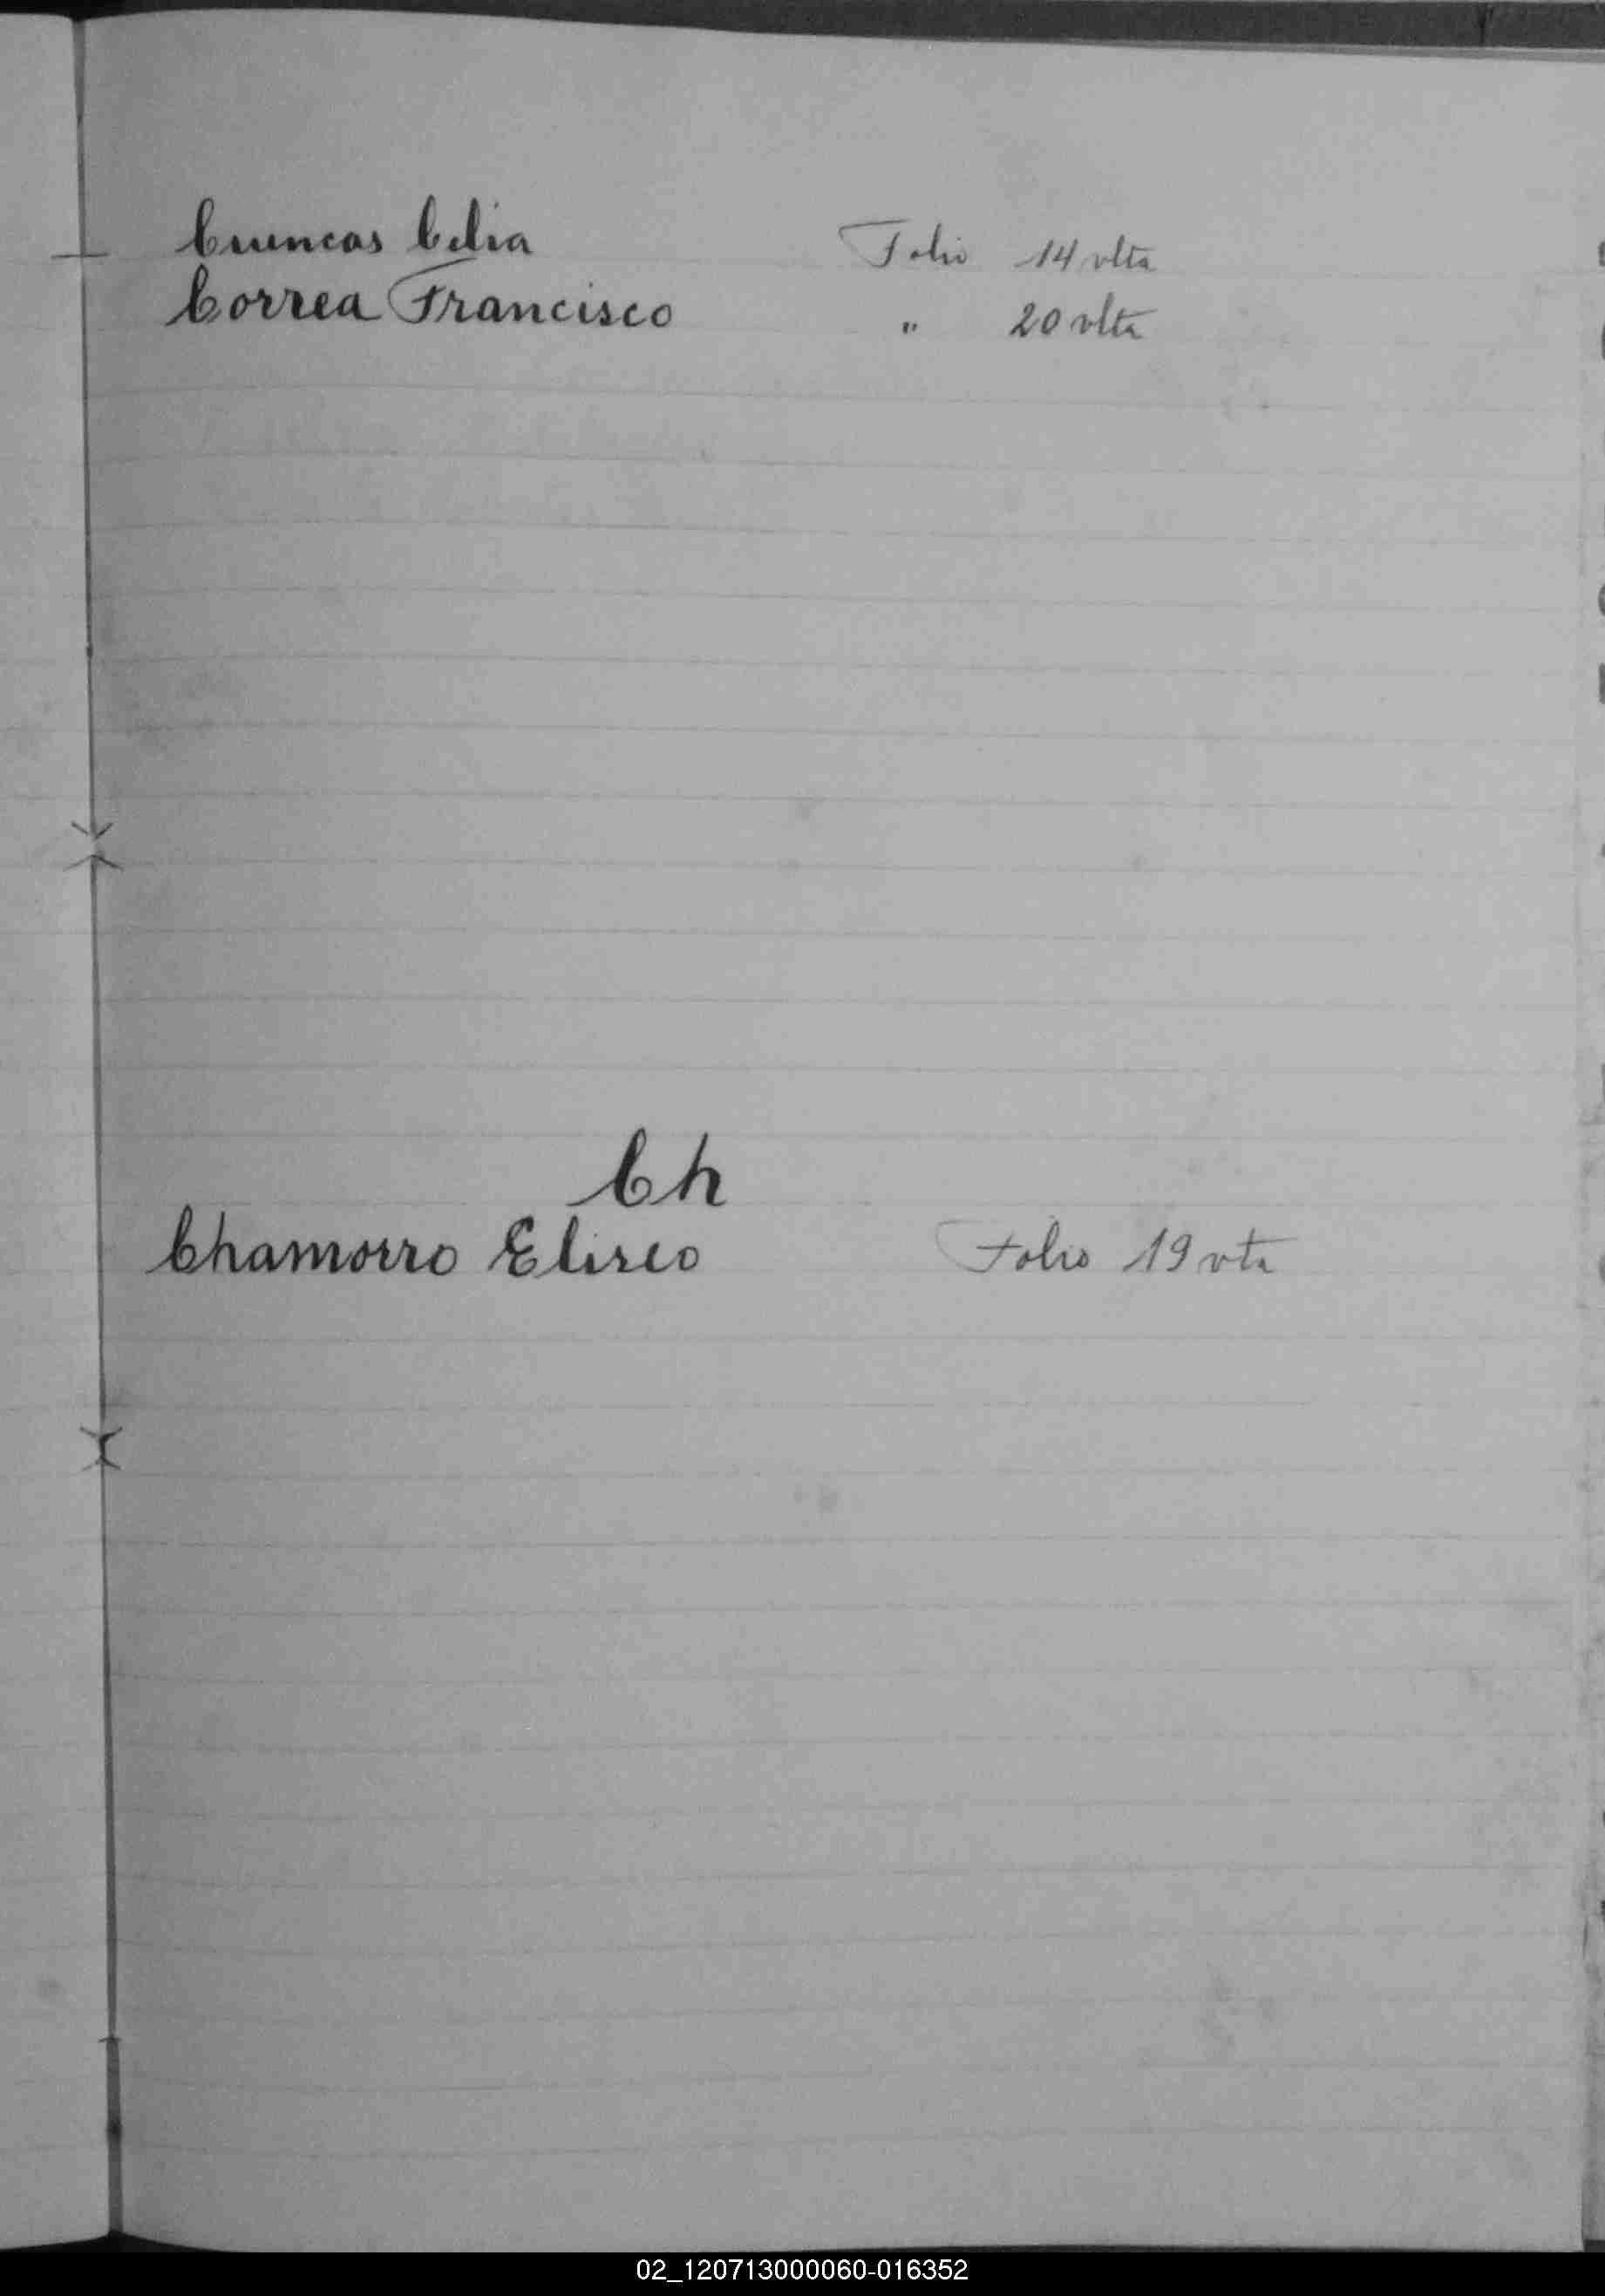 Cuencas Celia Folio 14 vlta
Correa Francisco " 20 vlta
Ch
Chamorro Eliseo Folio 19 vta
02_120713000060-016352